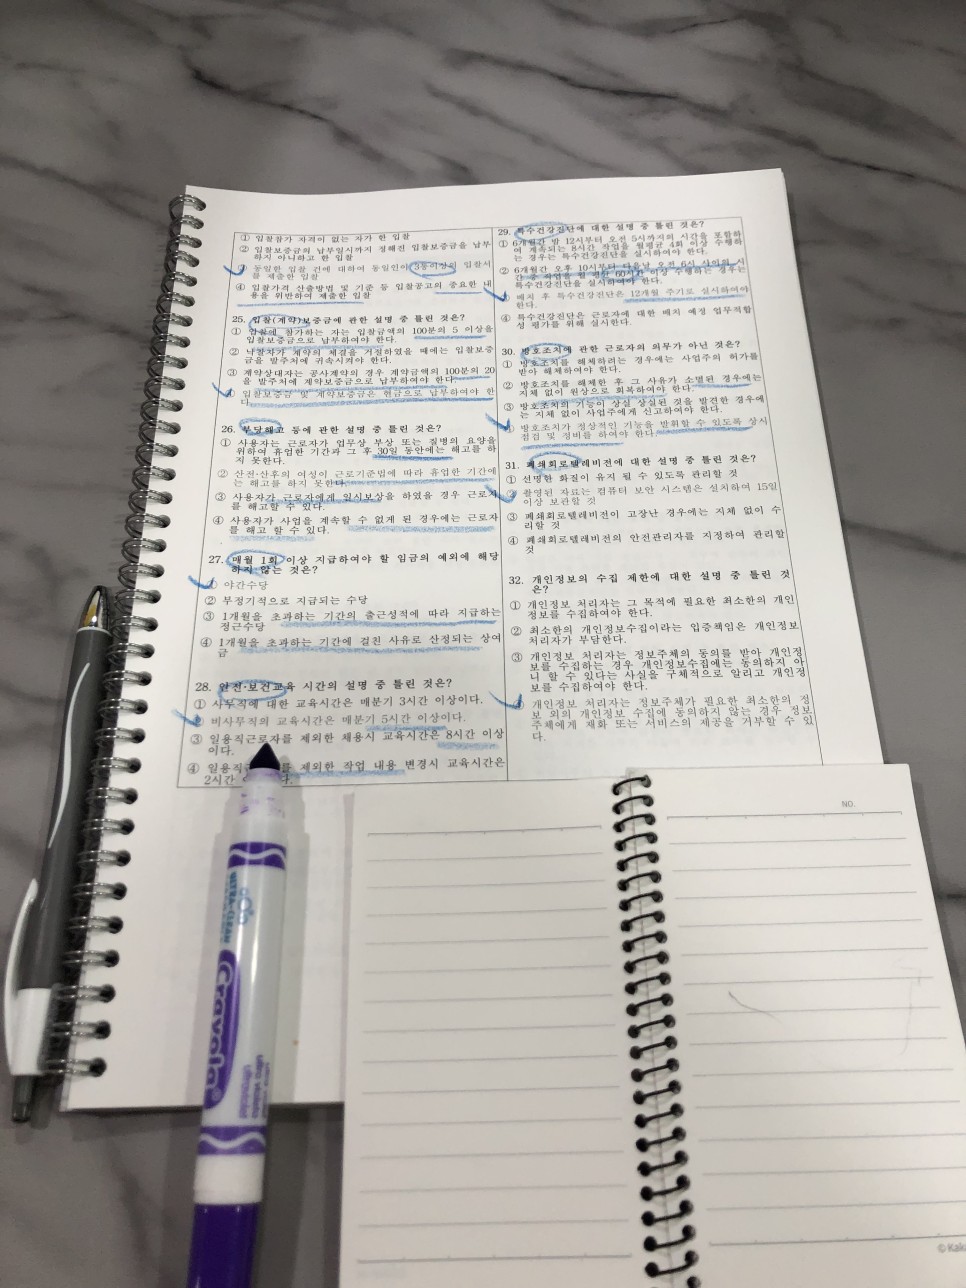 ① 입찰참가 자격이 없는 자가 한 입찰
② 입찰보증금의 납부일시까지 정해진 입찰보증금을 납부
하지 아니하고 한 입찰
③ 동일한 입찰 건에 대하여 동일인이 3통이상의 입찰서
를 제출한 입찰
④ 입찰가격 산출방법 및 기준 등 입찰공고의 중요한 내
용을 위반하여 제출한 입찰
25. 입찰(계약)보증금에 관한 설명 중 틀린 것은?
① 입찰에 참가하는 자는 입찰금액의 100분의 5 이상을
입찰보증금으로 납부하여야 한다.
② 낙찰자가 계약의 체결을 거절하였을 때에는 입찰보증
금을 발주처에 귀속시켜야 한다.
③ 계약상대자는 공사계약의 경우 계약금액의 100분의 20
을 발주처에 계약보증금으로 납부하여야 한다.
④ 입찰보증금 및 계약보증금은 현금으로 납부하여야 한
다.
26. 부당해고 등에 관한 설명 중 틀린 것은?
① 사용자는 근로자가 업무상 부상 또는 질병의 요양을
위하여 휴업한 기간과 그 후 30일 동안에는 해고를 하
지 못한다.
② 산전·산후의 여성이 근로기준법에 따라 휴업한 기간에
는 해고를 하지 못한다.
③ 사용자가 근로자에게 일시보상을 하였을 경우 근로자
를 해고할 수 있다.
④ 사용자가 사업을 계속할 수 없게 된 경우에는 근로자
를 해고 할 수 있다.
27. 매월 1회 이상 지급하여야 할 임금의 예외에 해당
하지 않는 것은?
① 야간수당
② 부정기적으로 지급되는 수당
③ 1개월을 초과하는 기간의 출근성적에 따라 지급하는
정근수당
④ 1개월을 초과하는 기간에 걸친 사유로 산정되는 상여
금
28. 안전·보건교육 시간의 설명 중 틀린 것은?
① 사무직에 대한 교육시간은 매분기 3시간 이상이다.
② 비사무직의 교육시간은 매분기 5시간 이상이다.
③ 일용직근로자를 제외한 채용시 교육시간은 8시간 이상
이다.
④ 일용직 를 제외한 작업 내용 변경시 교육시간은
2시간 다.
29. 특수건강진단에 대한 설명 중 틀린 것은?
① 6개월간 밤 12시부터 오전 5시까지의 시간을 포함하
여 계속되는 8시간 작업을 월평균 4회 이상 수행하
는 경우는 특수건강진단을 실시하여야 한다.
② 6개월간 오후 10시부터 다음날 오전 6시 사이의 시
간 중 작업을 월 평균 60시간 이상 수행하는 경우는
특수건강진단을 실시하여야 한다.
배치 후 특수건강진단은 12개월 주기로 실시하여야
한다.
④ 특수건강진단은 근로자에 대한 배치 예정 업무적합
성 평가를 위해 실시한다.
30. 방호조치에 관한 근로자의 의무가 아닌 것은?
① 방호조치를 해체하려는 경우에는 사업주의 허가를
받아 해체하여야 한다.
② 방호조치를 해체한 후 그 사유가 소멸된 경우에는
지체 없이 원상으로 회복하여야 한다
③ 방호조치의 기능이 상실 상실된 것을 발견한 경우에
는 지체 없이 사업주에게 신고하여야 한다.
④ 방호조치가 정상적인 기능을 발휘할 수 있도록 상시
점검 및 정비를 하여야 한다.
31. 폐쇄회로텔레비전에 대한 설명 중 틀린 것은?
① 선명한 화질이 유지 될 수 있도록 관리할 것
② 촬영된 자료는 컴퓨터 보안 시스템은 설치하여 15일
이상 보관할 것
③ 폐쇄회로텔레비전이 고장난 경우에는 지체 없이 수
리할 것
④ 폐쇄회로텔레비전의 안전관리자를 지정하여 관리할
것
32. 개인정보의 수집 제한에 대한 설명 중 틀린 것
은?
① 개인정보 처리자는 그 목적에 필요한 최소한의 개인
정보를 수집하여야 한다.
② 최소한의 개인정보수집이라는 입증책임은 개인정보
처리자가 부담한다.
③ 개인정보 처리자는 정보주체의 동의를 받아 개인정
보를 수집하는 경우 개인정보수집에는 동의하지 아
니 할 수 있다는 사실을 구체적으로 알리고 개인정
보를 수집하여야 한다.
개인정보 처리자는 정보주체가 필요한 최소한의 정
보 외의 개인정보 수집에 동의하지 않는 경우 정보
주체에게 재화 또는 서비스의 제공을 거부할 수 있
다.
NO.
ULTRA-CLEAN
Crayola
© Kaka